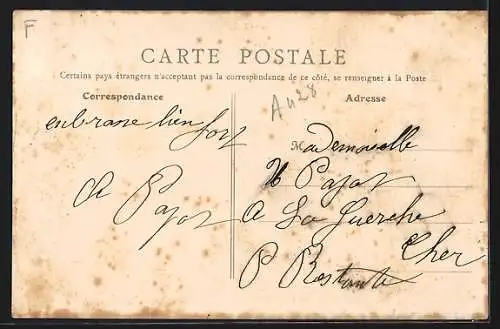 F
CARTE POSTALE
Certains pays étrangers n'acceptant pas la correspondance de ce côté, se renseigner à la Poste
Correspondance
enbrasse bien fort
Pajot
A 428
Adresse
Mademoiselle
Pajot
A La Guerche
Cher
P Restante